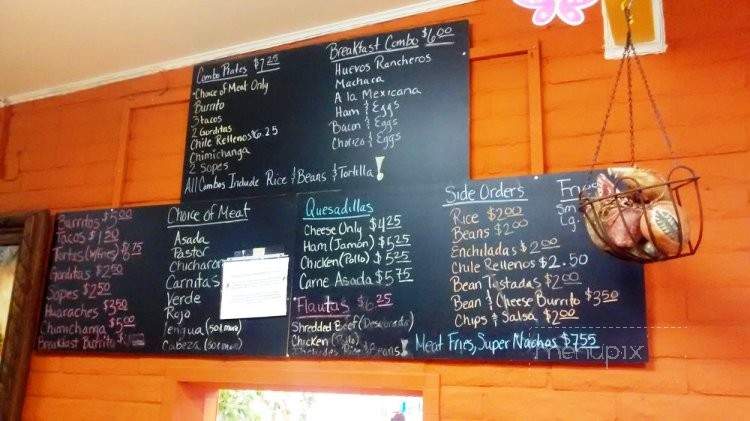 Combo Plates $7.25
Choice of Meat Only
Burrito
3 tacos
2 Gorditas
Chile Rellenos $6.25
Chimichanga
2 Sopes
All Combos Include Rice & Beans & Tortilla!
Breakfast Combo $6.00
Huevos Rancheros
Machaca
A la Mexicana
Ham & Eggs
Bacon & Eggs
Chorizo & Eggs
Burritos $5.00
Tacos $1.50
Tortas (w/fries)
Gorditas $2.50
Sopes $2.50
Huaraches $3.50
Chimichanga $5.00
Breakfast Burrito
Choice of Meat
Asada
Pastor
Chucharon
Carnitas
Verde
Rojo
Lengua (50¢ more)
Cabeza (50¢ more)
Quesadillas
Cheese Only $4.25
Ham (Jamon) $5.25
Chicken (Pollo) $5.25
Carne Asada $5.75
Flautas $6.25
Shredded Beef (Desebrada)
Chicken (Pollo)
Includes Rice & Beans!
Side Orders
Rice $2.00
Beans $2.00
Enchiladas $2.00
Chile Rellenos $2.50
Bean Tostadas $2.00
Bean & Cheese Burrito $3.50
Chips & Salsa $2.00
Meat Fries, Super Nachos $7.55
Sm
Lg
menupix